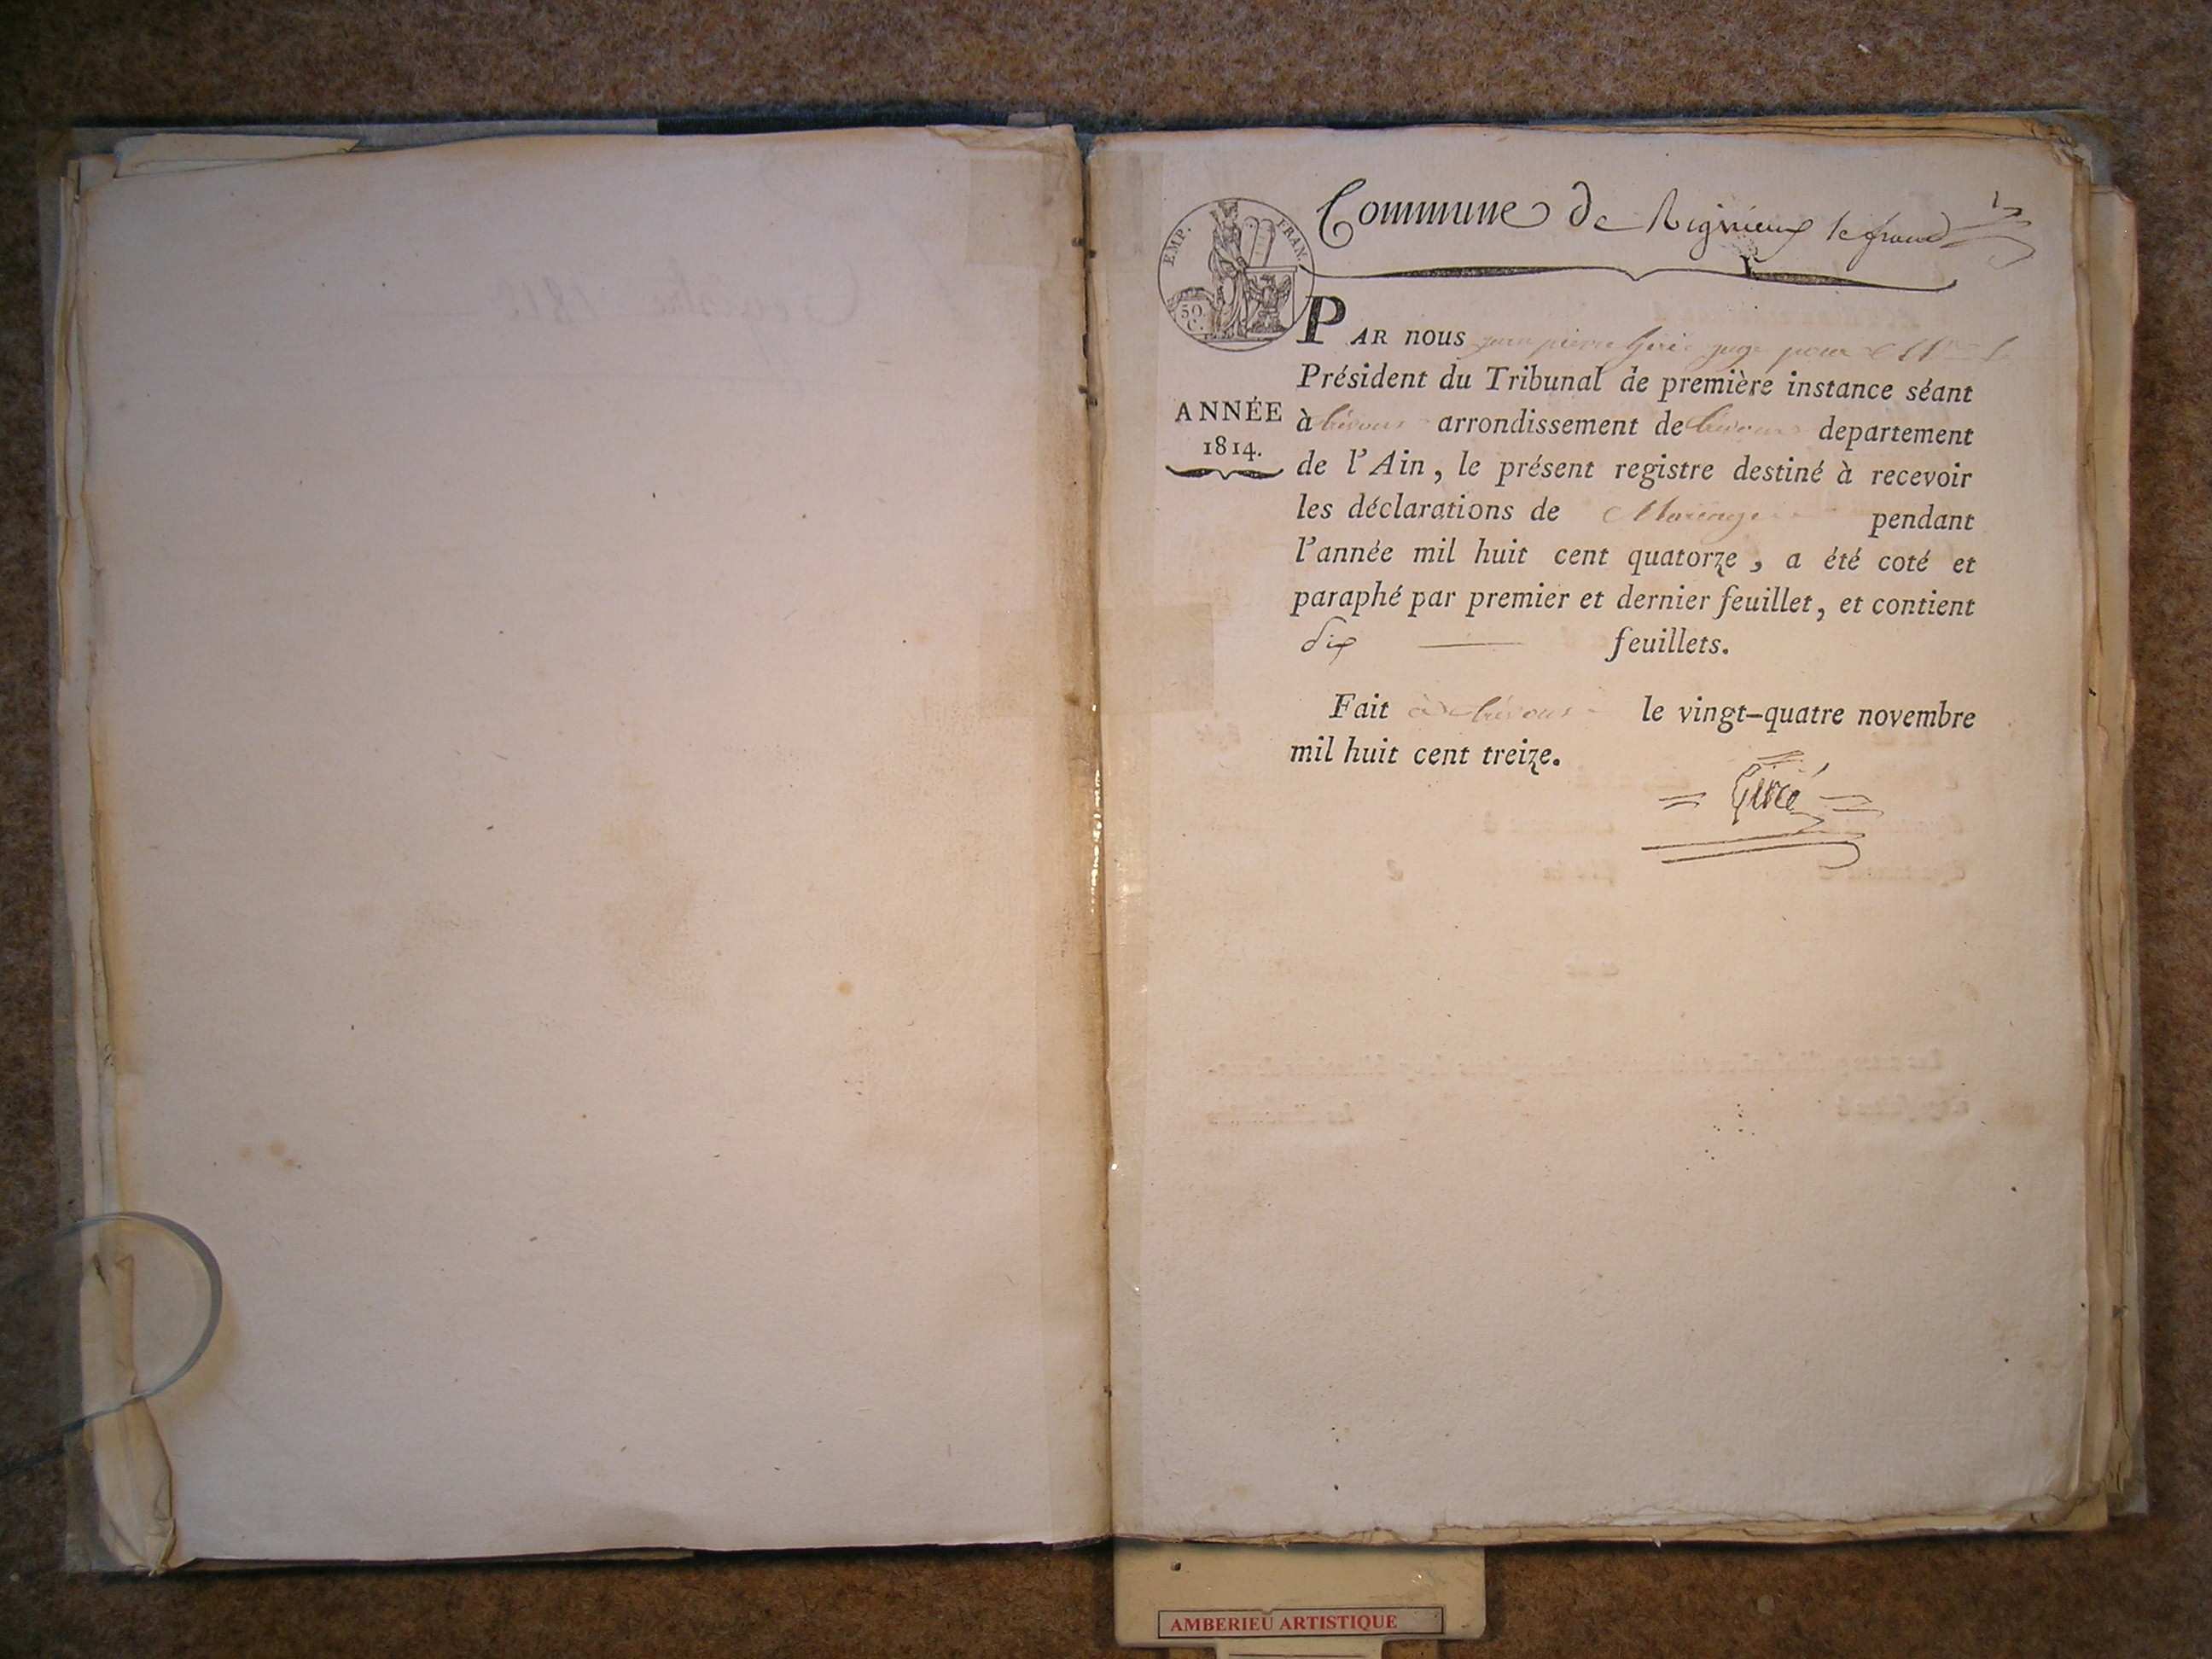 Commune de Rignieux le franc
EMP. FRAN.
50.
C.
PAR nous jean pierre juge pour
Président du Tribunal de première instance séant
ANNÉE
1814.
à trévoux arrondissement de trévoux departement
de l'Ain, le présent registre destiné à recevoir
les déclarations de Mariage pendant
l'année mil huit cent quatorze, a été coté et
paraphé par premier et dernier feuillet, et contient
dix feuillets.
Fait à trévoux le vingt-quatre novembre
mil huit cent treize.
AMBERIEU ARTISTIQUE